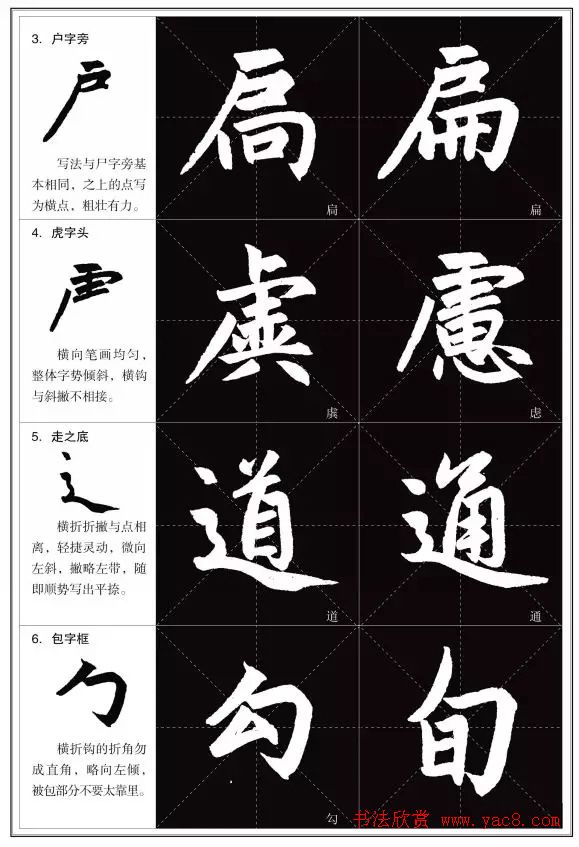 3. 户字旁
户
写法与尸字旁基
本相同，之上的点写
为横点，粗壮有力。
扃 扁
扃 扁
4. 虎字头
虍
横向笔画均匀，
整体字势倾斜，横钩
与斜撇不相接。
虞 慮
虞 虑
5. 走之底
辶
横折折撇与点相
离，轻捷灵动，微向
左斜，撇略左带，随
即顺势写出平捺。
道 通
道 通
6. 包字框
勹
横折钩的折角勿
成直角，略向左倾，
被包部分不要太靠里。
勾 旬
勾
书法欣赏 www.yac8.com